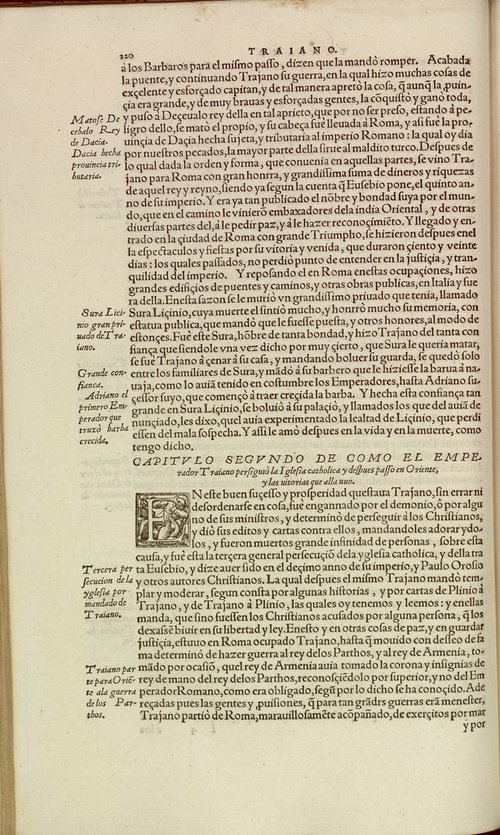 120
TRAIANO.
à los Barbaros para el mismo passo, dizen que la mandò romper. Acabada
la puente, y continuando Trajano su guerra, en la qual hizo muchas cosas de
exçelente y esforçado capitan, y de tal manera apretò la cosa, q̃ aunq̃ la ꝓuin-
çia era grande, y de muy brauas y esforçadas gentes, la cõquistò y ganò toda,
y puso à Deçeualo rey della en tal aprieto, que por no ser preso, estando à pe-
ligro dello, se matò el propio, y su cabeça fuè lleuada à Roma, y asi fuè la pro-
uinçia de Daçia hecha sujeta, y tributaria al imperio Romano: la qual oy dia
por nuestros pecados, la mayor parte della sirue al maldito turco. Despues de
lo qual dada la orden y forma, que conuenia en aquellas partes, se vino Tra-
jano para Roma con gran honrra, y grandissima suma de dineros y riquezas
de aquel rey y reyno, siendo ya segun la cuenta q̃ Eusebio pone, el quinto an-
no de su imperio. Y era ya tan publicado el nõbre y bondad suya por el mun-
do, que en el camino le vinierõ embaxadores dela india Oriental, y de otras
diuersas partes del, à le pedir paz, y à le hazer reconoçimiẽto. Y llegado y en-
trado en la çiudad de Roma con grande Triumpho, se hizieron despues en el
la espectaculos y fiestas por su vitoria y venida, que duraron çiento y veinte
dias: los quales passados, no perdio punto de entender en la justiçia, y tran-
quilidad del imperio. Y reposando el en Roma enestas ocupaçiones, hizo
grandes edifiçios de puentes y caminos, y otras obras publicas, en Italia y fue
ra della. Enesta sazon se le murio vn grandissimo priuado que tenia, llamado
Sura Liçinio, cuya muerte el sintiò mucho, y honrrò mucho su memoria, con
estatua publica, que mandò que le fuesse puesta, y otros honores, al modo de
estonçes. Fuè este Sura, hõbre de tanta bondad, y hizo Trajano del tanta con
fiança que siendole vna vez dicho por muy çierto, que Sura le queria matar,
se fuè Trajano à çenar à su casa, y mandando boluer su guarda, se quedò solo
entre los familiares de Sura, y mãdò à su barbero que le hiziesse la barua à na-
uaja, como lo auiã tenido en costumbre los Emperadores, hasta Adriano su-
çessor suyo, que començò à traer creçida la barba. Y hecha esta confiança tan
grande en Sura Liçinio, se boluiò à su palaçio, y llamados los que del auiã de
nunçiado, les dixo, quel auia experimentado la lealtad de Liçinio, que perdi
essen del mala sospecha. Y assi le amò despues en la vida y en la muerte, como
tengo dicho.
Matose De
cebalo Rey
de Dacia.
Dacia hecha
prouincia tri-
butaria.
Sura Lici-
nio gran pri-
uado de Tra-
iano.
Grande con-
fianca.
Adriano el
primero Em-
perador que
truxò barba
crecida.
CAPITVLO SEGVNDO DE COMO EL EMPE-
rador Traiano persiguò la Iglesia catholica y despues passo en Oriente,
y las uitorias que alla uuo.
EN este buen suçesso y prosperidad questaua Trajano, sin errar ni
desfordenarse en cosa, fuè engannado por el demonio, ò por algu
no de sus ministros, y determinò de perseguir à los Christianos,
y diò sus editos y cartas contra ellos, mandandoles adorar ydo-
los, y fueron muertos grande infinidad de personas, sobre esta
causa, y fuè esta la terçera general persecuçiõ dela yglesia catholica, y della tra
ta Eusebio, y dize auer sido en el deçimo anno de su imperio, y Paulo Orosio
y otros autores Christianos. La qual despues el mismo Trajano mandò tem-
plar y moderar, segun consta por algunas historias, y por cartas de Plinio à
Trajano, y de Trajano à Plinio, las quales oy tenemos y leemos: y enellas
manda, que sino fuessen los Christianos acusados por alguna persona, q̃ los
dexassẽ biuir en su libertad y ley. Enesto y en otras cosas de paz, y en guardar
justiçia, estuuo en Roma ocupado Trajano, hasta q̃ mouido con desseo de fa
ma determinò de hazer guerra al rey delos Parthos, y al rey de Armenia, to-
mãdo por ocasiõ, quel rey de Armenia auia tomado la corona y insignias de
rey de mano del rey delos Parthos, reconosçiẽdolo por superior, y no del Em
perador Romano, como era obligado, segũ por lo dicho se ha conoçido. Ade
reçadas pues las gentes y ꝓuisiones, q̃ para tan grãdrs guerras erã menester,
Trajano partiò de Roma, marauillosamẽte acõpañado, de exerçitos por mar
y por
Tercera per
secucion de la
yglesia por
mandado de
Traiano.
Traiano par
te para Oriẽ-
te ala guerra
de los Par-
thos.